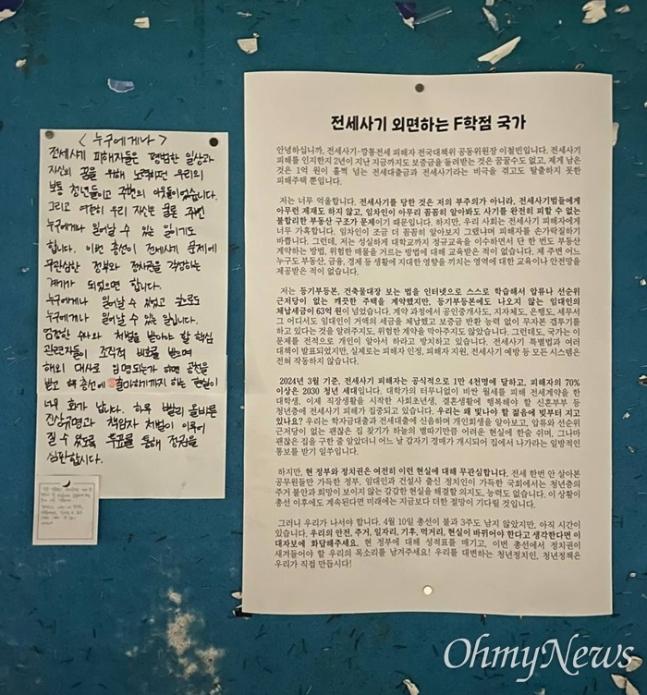 <누구에게나>
전세사기 피해자들은 평범한 일상과
자신의 꿈을 위해 노력하던 우리의
보통 청년들이고 주변의 이웃들이었습니다.
그리고 여전히 우리 자신은 물론 주변
누구에게나 일어날 수 있는 일이기도
합니다. 이번 총선이 전세사기 문제에
무관심한 정부와 정치권을 각성하는
계기가 되었으면 합니다.
누구에게나 일어날 수 있었고 앞으로도
누구에게나 일어날 수 있는 일입니다.
엄정한 수사와 처벌을 받아야 할 핵심
관련자들이 조직적 비호를 받으며
해외 대사로 임명되는가 하면 공천을
받고 총선에 출마하기까지 하는 현실이
너무 화가 납니다. 하루 빨리 올바른
진상규명과 책임자 처벌이 이루어
질 수 있도록 투표를 통해 정권을
심판합시다.
전세사기 외면하는 F학점 국가
안녕하십니까, 전세사기·깡통전세 피해자 전국대책위 공동위원장 이철빈입니다. 전세사기
피해를 인지한지 2년이 지난 지금까지도 보증금을 돌려받는 것은 꿈꿀수도 없고, 제게 남은
것은 1억 원이 훌쩍 넘는 전세대출금과 전세사기라는 비극을 겪고도 탈출하지 못한
피해주택 뿐입니다.
저는 너무 억울합니다. 전세사기를 당한 것은 저의 부주의가 아니라, 전세사기범들에게
아무런 제재도 하지 않고, 임차인이 아무리 꼼꼼히 알아봐도 사기를 완전히 피할 수 없는
불합리한 부동산 구조가 문제이기 때문입니다. 하지만, 우리 사회는 전세사기 피해자에게
너무 가혹합니다. 임차인이 조금 더 꼼꼼히 알아보지 그랬냐며 피해자를 손가락질하기
바쁩니다. 그런데, 저는 성실하게 대학교까지 정규교육을 이수하면서 단 한 번도 부동산
계약하는 방법, 위험한 매물을 거르는 방법에 대해 교육받은 적이 없습니다. 제 주변 어느
누구도 부동산, 금융, 경제 등 생활에 지대한 영향을 끼치는 영역에 대한 교육이나 안전망을
제공받은 적이 없습니다.
저는 등기부등본, 건축물대장 보는 법을 인터넷으로 스스로 학습해서 압류나 선순위
근저당이 없는 깨끗한 주택을 계약했지만, 등기부등본에도 나오지 않는 임대인의
체납세금이 63억 원이 넘었습니다. 계약 과정에서 공인중개사도, 지자체도, 은행도, 세무서도
그 어디서도 임대인이 거액의 세금을 체납했고 보증금 반환 능력 없이 무자본 갭투기를
하고 있다는 것을 알려주지도, 위험한 계약을 막아주지도 않았습니다. 그런데도, 국가는 이
문제를 전적으로 개인이 알아서 하라고 방치하고 있습니다. 전세사기 특별법과 여러
대책이 발표되었지만, 실제로는 피해자 인정, 피해자 지원, 전세사기 예방 등 모든 시스템은
전혀 작동하지 않습니다.
2024년 3월 기준, 전세사기 피해자는 공식적으로 1만 4천명에 달하고, 피해자의 70%
이상은 2030 청년 세대입니다. 대학가의 터무니없이 비싼 월세를 피해 전세계약을 한
대학생, 이제 직장생활을 시작한 사회초년생, 결혼생활에 행복해야 할 신혼부부 등
청년층에 전세사기 피해가 집중되고 있습니다. 우리는 왜 빛나야 할 젊음에 빚부터 지고
있나요? 우리는 학자금대출과 전세대출에 신음하며 개인회생을 알아보고, 압류와 선순위
근저당이 없는 괜찮은 집 찾기가 하늘의 별따기만큼 어려운 현실에 한숨 쉬며, 그나마
괜찮은 집을 구한 줄 알았더니 어느 날 갑자기 경매가 개시되어 집에서 나가라는 일방적인
통보를 받기 일쑤입니다.
하지만, 현 정부와 정치권은 여전히 이런 현실에 대해 무관심합니다. 전세 한번 안 살아본
공무원들만 가득한 정부, 임대인과 건설사 출신 정치인이 가득한 국회에서는 청년층의
주거 불안과 희망이 보이지 않는 갑갑한 현실을 해결할 의지도, 능력도 없습니다. 이 상황이
총선 이후에도 계속된다면 미래에는 지금보다 더한 절망이 기다릴 것입니다.
그러니 우리가 나서야 합니다. 4월 10일 총선이 불과 3주도 남지 않았지만, 아직 시간이
있습니다. 우리의 안전, 주거, 일자리, 기후, 먹거리, 현실이 바뀌어야 한다고 생각한다면 이
대자보에 화답해주세요. 현 정부에 대해 성적표를 매기고, 이번 총선에서 정치권이
새겨들어야 할 우리의 목소리를 남겨주세요! 우리를 대변하는 청년정치인, 청년정책은
우리가 직접 만듭시다!
OhmyNews